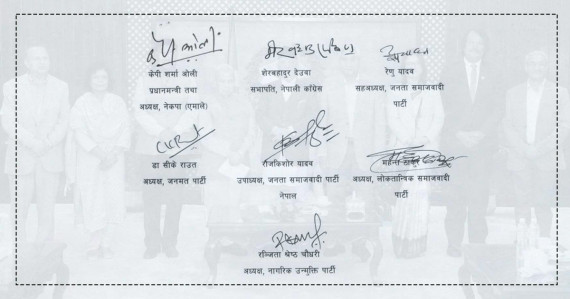 केपी शर्मा ओली
प्रधानमन्त्री तथा
अध्यक्ष, नेकपा (एमाले)
शेरबहादुर देउवा
सभापति, नेपाली काँग्रेस
रेणु यादव
सहअध्यक्ष, जनता समाजवादी
पार्टी
डा सीके राउत
अध्यक्ष, जनमत पार्टी
राजकिशोर यादव
उपाध्यक्ष, जनता समाजवादी पार्टी
नेपाल
अध्यक्ष, लोकतान्त्रिक समाजवादी
पार्टी
रञ्जिता श्रेष्ठ चौधरी
अध्यक्ष, नागरिक उन्मुक्ति पार्टी